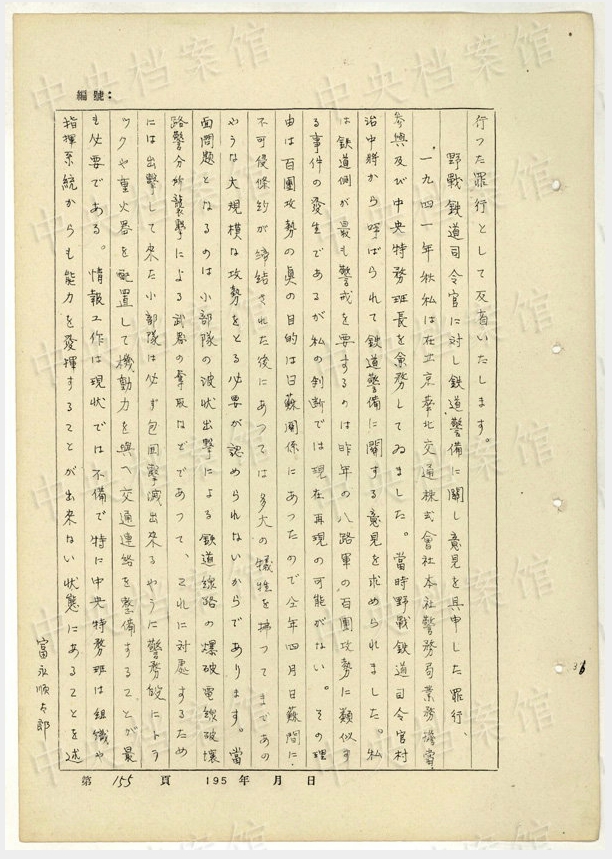 編號:
行つた罪行として反省いたします。
野戰鉄道司令官に対し鉄道警備に關し意見を具申した罪行、
一九四一年秋私は在北京華北交通株式會社本社警務局業務擔當
参與及び中央特務班長を兼務してゐました。當時野戰鉄道司令官村
治中將から呼ばられて鉄道警備に關する意見を求められました。私
は鉄道側が最も警戒を要するのは昨年の八路軍の百團攻勢に類似す
る事件の發生であるが私の判断では現在再現の可能がない。その理
由は百團攻勢の真の目的は日蘇関係にあつたので今年四月日蘇間に
不可侵條約が締結された後にあつては多大の犠牲を拂つてまであの
やうな大規模な攻勢をとる必要が認められないからであります。當
面問題となるのは小部隊の波状出撃による鉄道線路の爆破電線破壊
路警分所襲撃による武器の奪取などであつて、これに対應するため
には出撃して来た小部隊は必ず包囲撃滅出来るやうに警務段にトラ
ックや重火器を配置して機動力を與へ交通連絡を整備することが最
も必要である。情報工作は現状では不備で特に中央特務班は組織や
指揮系統からも能力を發揮することが出来ない状態にあることを述
富永順太郎
第 155 頁 195 年 月 日
36
中央档案馆